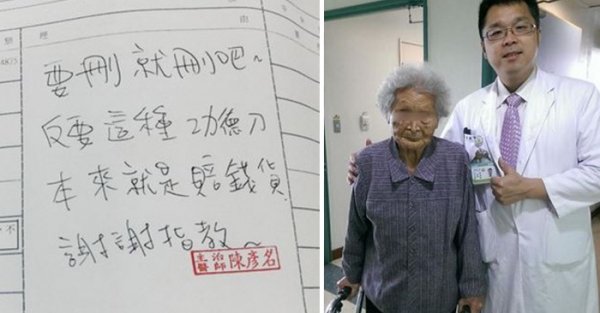 理 由
要刪就刪吧~
反要這種功德刀
本來就是賠錢貨
謝謝指教~
主治醫師 陳彥名
不